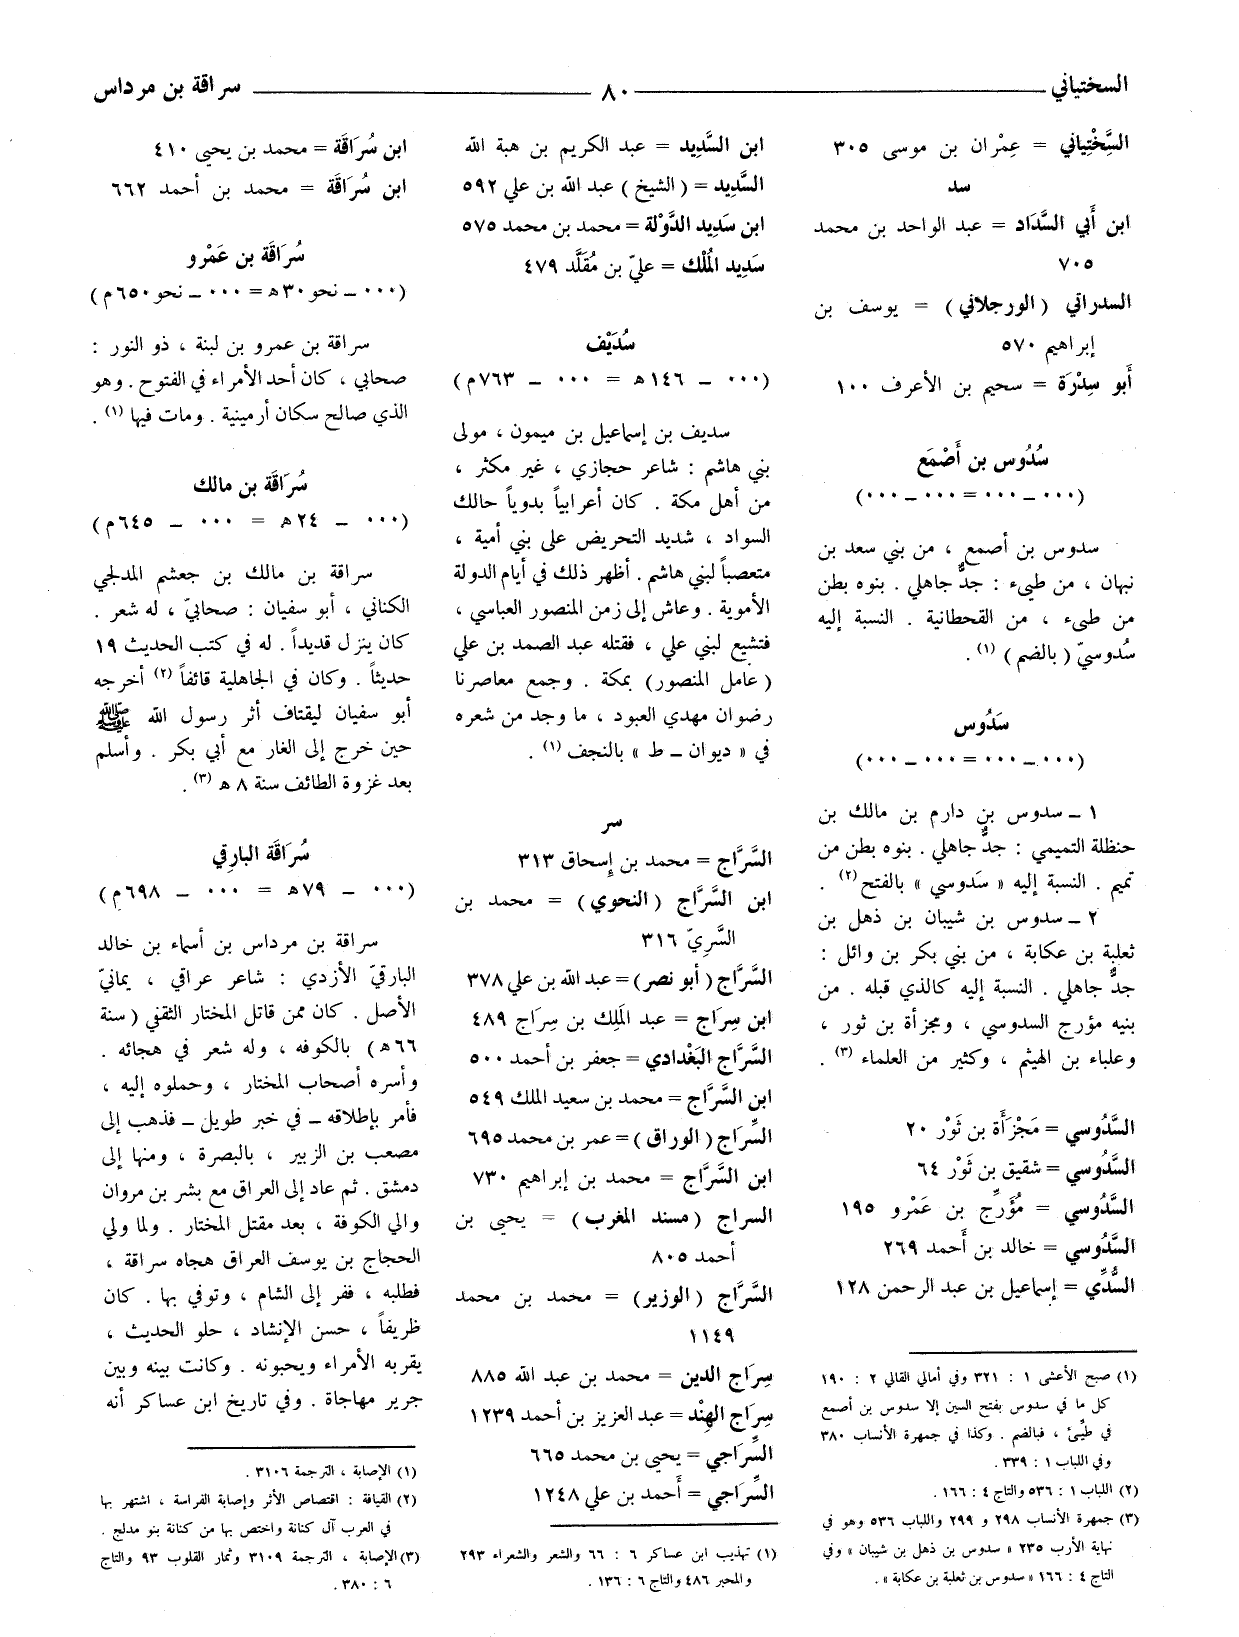 السختياني ــــــ ٨٠ ــــــ سراقة بن مرداس
السَّخْتِياني = عِمْران بن موسى ٣٠٥
سد
ابن أَبي السَّدَاد = عبد الواحد بن محمد
٧٠٥
السدراتي ( الورجلاني ) = يوسف بن
إبراهيم ٥٧٠
أَبو سِدْرَة = سحيم بن الأعرف ١٠٠
سُدُوس بن أَصْمَع
(٠٠٠ ــ ٠٠٠ = ٠٠٠ ــ ٠٠٠)
سدوس بن أصمع ، من بني سعد بن
نبهان ، من طيىء : جدٌّ جاهلي . بنوه بطن
من طيىء ، من القحطانية . النسبة إليه
سُدوسيّ ( بالضم ) (١) .
سَدُوس
(٠٠٠ ــ ٠٠٠ = ٠٠٠ ــ ٠٠٠)
١ ــ سدوس بن دارم بن مالك بن
حنظلة التميمي : جدٌّ جاهلي . بنوه بطن من
تميم . النسبة إليه « سَدوسي » بالفتح (٢) .
٢ ــ سدوس بن شيبان بن ذهل بن
ثعلبة بن عكابة ، من بني بكر بن وائل :
جدٌّ جاهلي . النسبة إليه كالذي قبله . من
بنيه مؤرج السدوسي ، ومجزأة بن ثور ،
وعلباء بن الهيثم ، وكثير من العلماء (٣) .
السَّدُوسي = مَجْزَأَة بن ثَوْر ٢٠
السَّدُوسي = شقيق بن ثَوْر ٦٤
السَّدُوسي = مُؤَرِّج بن عَمْرو ١٩٥
السَّدُوسي = خالد بن أَحمد ٢٦٩
السُّدِّي = إسماعيل بن عبد الرحمن ١٢٨
(١) صبح الأعشى ١ : ٣٢١ وفي أمالي القالي ٢ : ١٩٠
كل ما في سدوس بفتح السين إلا سدوس بن أصمع
في طيِّئ ، فبالضم . وكذا في جمهرة الأنساب ٣٨٠
وفي اللباب ١ : ٣٣٩ .
(٢) اللباب ١ : ٥٣٦ والتاج ٤ : ١٦٦ .
(٣) جمهرة الأنساب ٢٩٨ و ٢٩٩ واللباب ٥٣٦ وهو في
نهاية الأرب ٢٣٥ « سدوس بن ذهل بن شيبان » وفي
التاج ٤ : ١٦٦ « سدوس بن ثعلبة بن عكابة » .
ابن السَّدِيد = عبد الكريم بن هبة الله
السَّدِيد = ( الشيخ ) عبد الله بن علي ٥٩٢
ابن سَدِيد الدَّوْلة = محمد بن محمد ٥٧٥
سَدِيد المُلْك = عليّ بن مُقَلَّد ٤٧٩
سُدَيْف
(٠٠٠ ــ ١٤٦هـ = ٠٠٠ ــ ٧٦٣م)
سديف بن إسماعيل بن ميمون ، مولى
بني هاشم : شاعر حجازي ، غير مكثر ،
من أهل مكة . كان أعرابياً بدوياً حالك
السواد ، شديد التحريض على بني أمية ،
متعصباً لبني هاشم . أظهر ذلك في أيام الدولة
الأموية . وعاش إلى زمن المنصور العباسي ،
فتشيع لبني علي ، فقتله عبد الصمد بن علي
( عامل المنصور ) بمكة . وجمع معاصرنا
رضوان مهدي العبود ، ما وجد من شعره
في « ديوان ــ ط » بالنجف (١) .
سر
السَّرَّاج = محمد بن إسحاق ٣١٣
ابن السَّرَّاج ( النحوي ) = محمد بن
السَّرِيّ ٣١٦
السَّرَّاج ( أبو نصر ) = عبد الله بن علي ٣٧٨
ابن سِرَاج = عبد المَلِك بن سِرَاج ٤٨٩
السَّرَّاج البَغْدادي = جعفر بن أحمد ٥٠٠
ابن السَّرَّاج = محمد بن سعيد الملك ٥٤٩
السِّرَاج ( الوراق ) = عمر بن محمد ٦٩٥
ابن السَّرَّاج = محمد بن إبراهيم ٧٣٠
السراج ( مسند المغرب ) = يحيى بن
أحمد ٨٠٥
السَّرَّاج ( الوزير ) = محمد بن محمد
١١٤٩
سِرَاج الدين = محمد بن عبد الله ٨٨٥
سِرَاج الهِنْد = عبد العزيز بن أحمد ١٢٣٩
السِّرَاجي = يحيى بن محمد ٦٦٥
السِّرَاجي = أَحمد بن علي ١٢٤٨
(١) تهذيب ابن عساكر ٦ : ٦٦ والشعر والشعراء ٢٩٣
والمحبر ٤٨٦ والتاج ٦ : ١٣٦ .
ابن سُرَاقَة = محمد بن يحيى ٤١٠
ابن سُرَاقَة = محمد بن أحمد ٦٦٢
سُرَاقَة بن عَمْرو
(٠٠٠ ــ نحو ٣٠هـ = ٠٠٠ ــ نحو ٦٥٠م)
سراقة بن عمرو بن لبنة ، ذو النور :
صحابي ، كان أحد الأمراء في الفتوح . وهو
الذي صالح سكان أرمينية . ومات فيها (١) .
سُرَاقَة بن مالك
(٠٠٠ ــ ٢٤هـ = ٠٠٠ ــ ٦٤٥م)
سراقة بن مالك بن جعشم المدلجي
الكناني ، أبو سفيان : صحابيّ ، له شعر .
كان ينزل قديداً . له في كتب الحديث ١٩
حديثاً . وكان في الجاهلية قائفاً (٢) أخرجه
أبو سفيان ليقتاف أثر رسول الله ﷺ
حين خرج إلى الغار مع أبي بكر . وأسلم
بعد غزوة الطائف سنة ٨ هـ (٣) .
سُرَاقَة البارِقي
(٠٠٠ ــ ٧٩هـ = ٠٠٠ ــ ٦٩٨م)
سراقة بن مرداس بن أسماء بن خالد
البارقيّ الأزدي : شاعر عراقي ، يمانيّ
الأصل . كان ممن قاتل المختار الثقفي ( سنة
٦٦ هـ ) بالكوفه ، وله شعر في هجائه .
وأسره أصحاب المختار ، وحملوه إليه ،
فأمر بإطلاقه ــ في خبر طويل ــ فذهب إلى
مصعب بن الزبير ، بالبصرة ، ومنها إلى
دمشق . ثم عاد إلى العراق مع بشر بن مروان
والي الكوفة ، بعد مقتل المختار . ولما ولي
الحجاج بن يوسف العراق هجاه سراقة ،
فطلبه ، ففر إلى الشام ، وتوفي بها . كان
ظريفاً ، حسن الإنشاد ، حلو الحديث ،
يقربه الأمراء ويحبونه . وكانت بينه وبين
جرير مهاجاة . وفي تاريخ ابن عساكر أنه
(١) الإصابة ، الترجمة ٣١٠٦ .
(٢) القيافة : اقتصاص الأثر وإصابة الفراسة ، اشتهر بها
في العرب آل كنانة واختص بها من كنانة بنو مدلج .
(٣) الإصابة ، الترجمة ٣١٠٩ وثمار القلوب ٩٣ والتاج
٦ : ٣٨٠ .